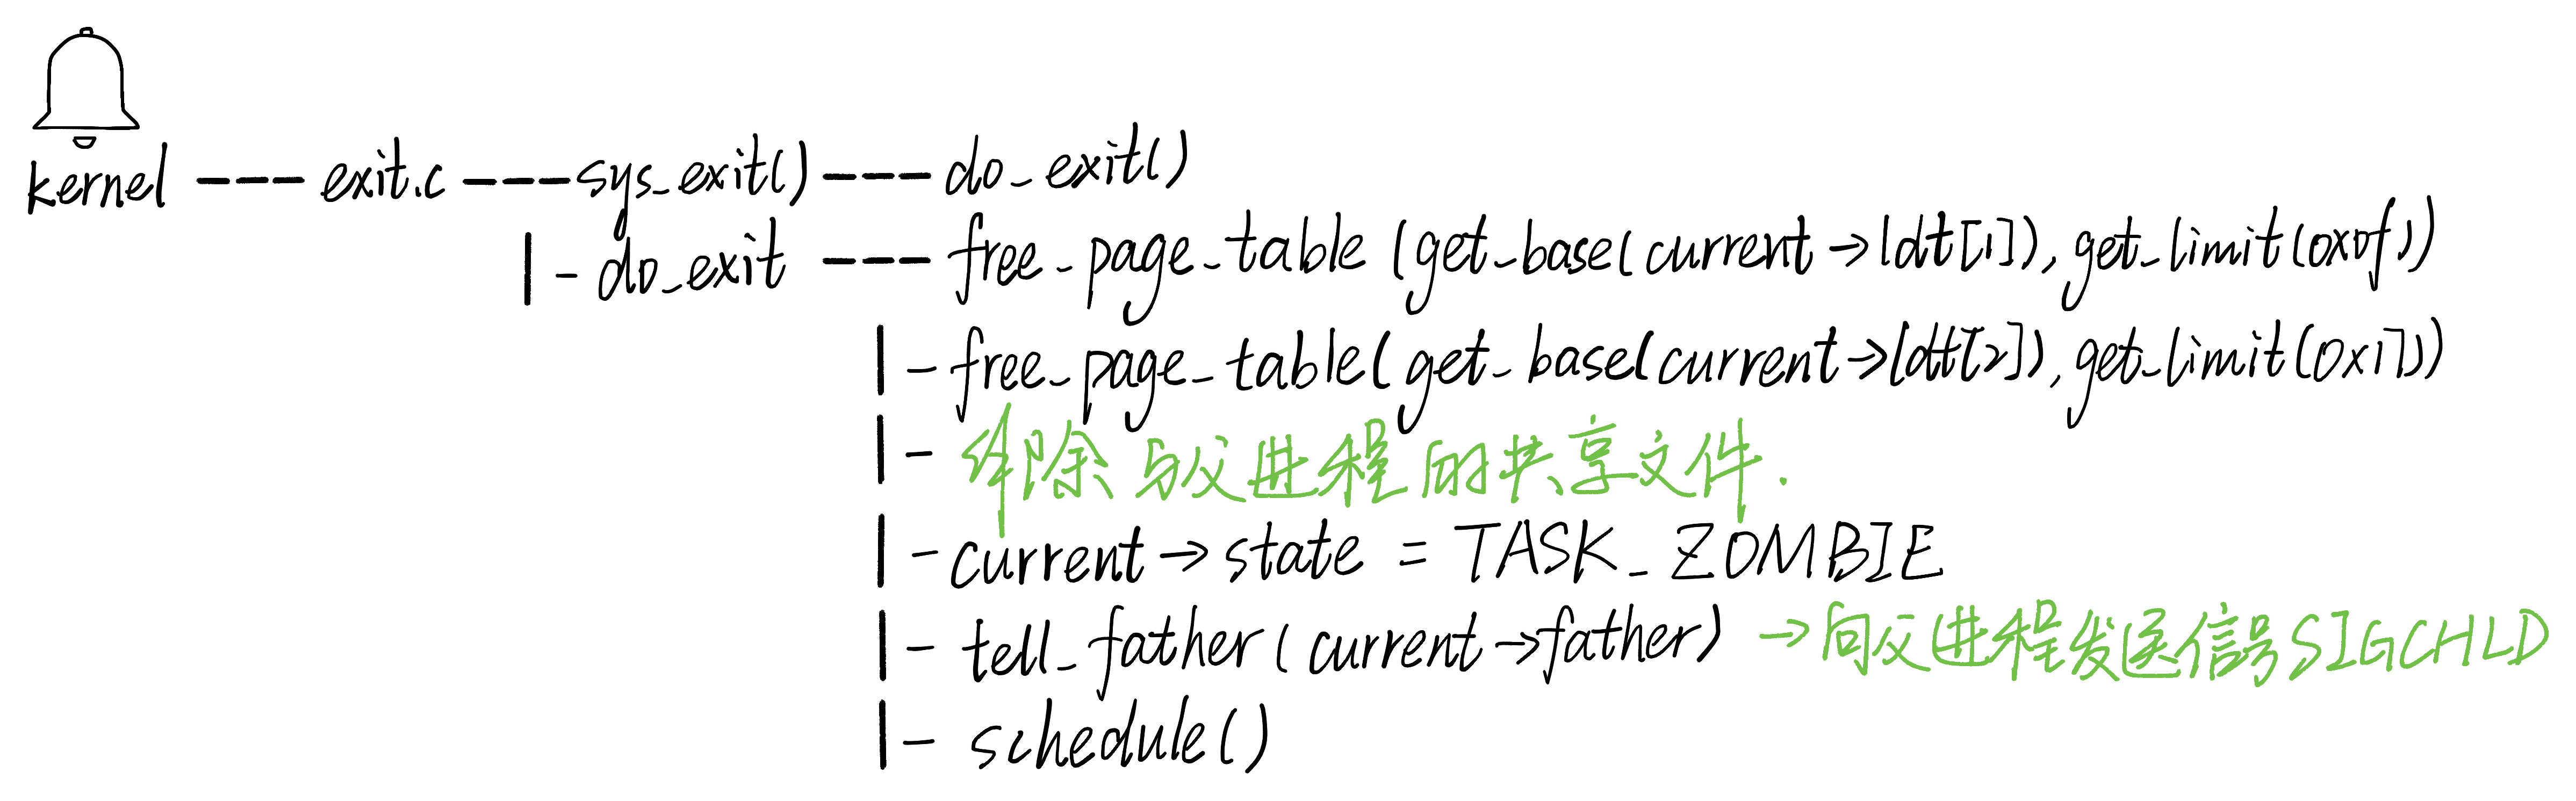 kernel --- exit.c --- sys_exit() --- do_exit()
|- do_exit --- free_page_table (get_base(current->ldt[1]), get_limit(0x0f))
|- free_page_table(get_base(current->ldt[2]), get_limit(0x17))
|- 解除与父进程的共享文件.
|- current->state = TASK_ZOMBIE
|- tell_father(current->father) →向父进程发送信号SIGCHLD
|- schedule()